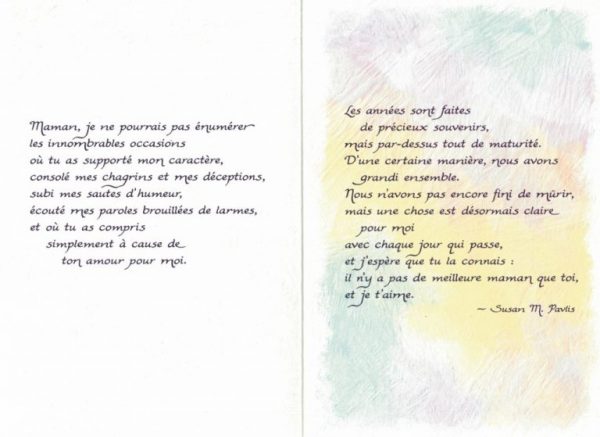 Maman, je ne pourrais pas énumérer
les innombrables occasions
où tu as supporté mon caractère,
consolé mes chagrins et mes déceptions,
subi mes sautes d'humeur,
écouté mes paroles brouillées de larmes,
et où tu as compris
simplement à cause de
ton amour pour moi.
Les années sont faites
de précieux souvenirs,
mais par-dessus tout de maturité.
D'une certaine manière, nous avons
grandi ensemble.
Nous n'avons pas encore fini de mûrir,
mais une chose est désormais claire
pour moi
avec chaque jour qui passe,
et j'espère que tu la connais :
il n'y a pas de meilleure maman que toi,
et je t'aime.
~ Susan M. Pavlis